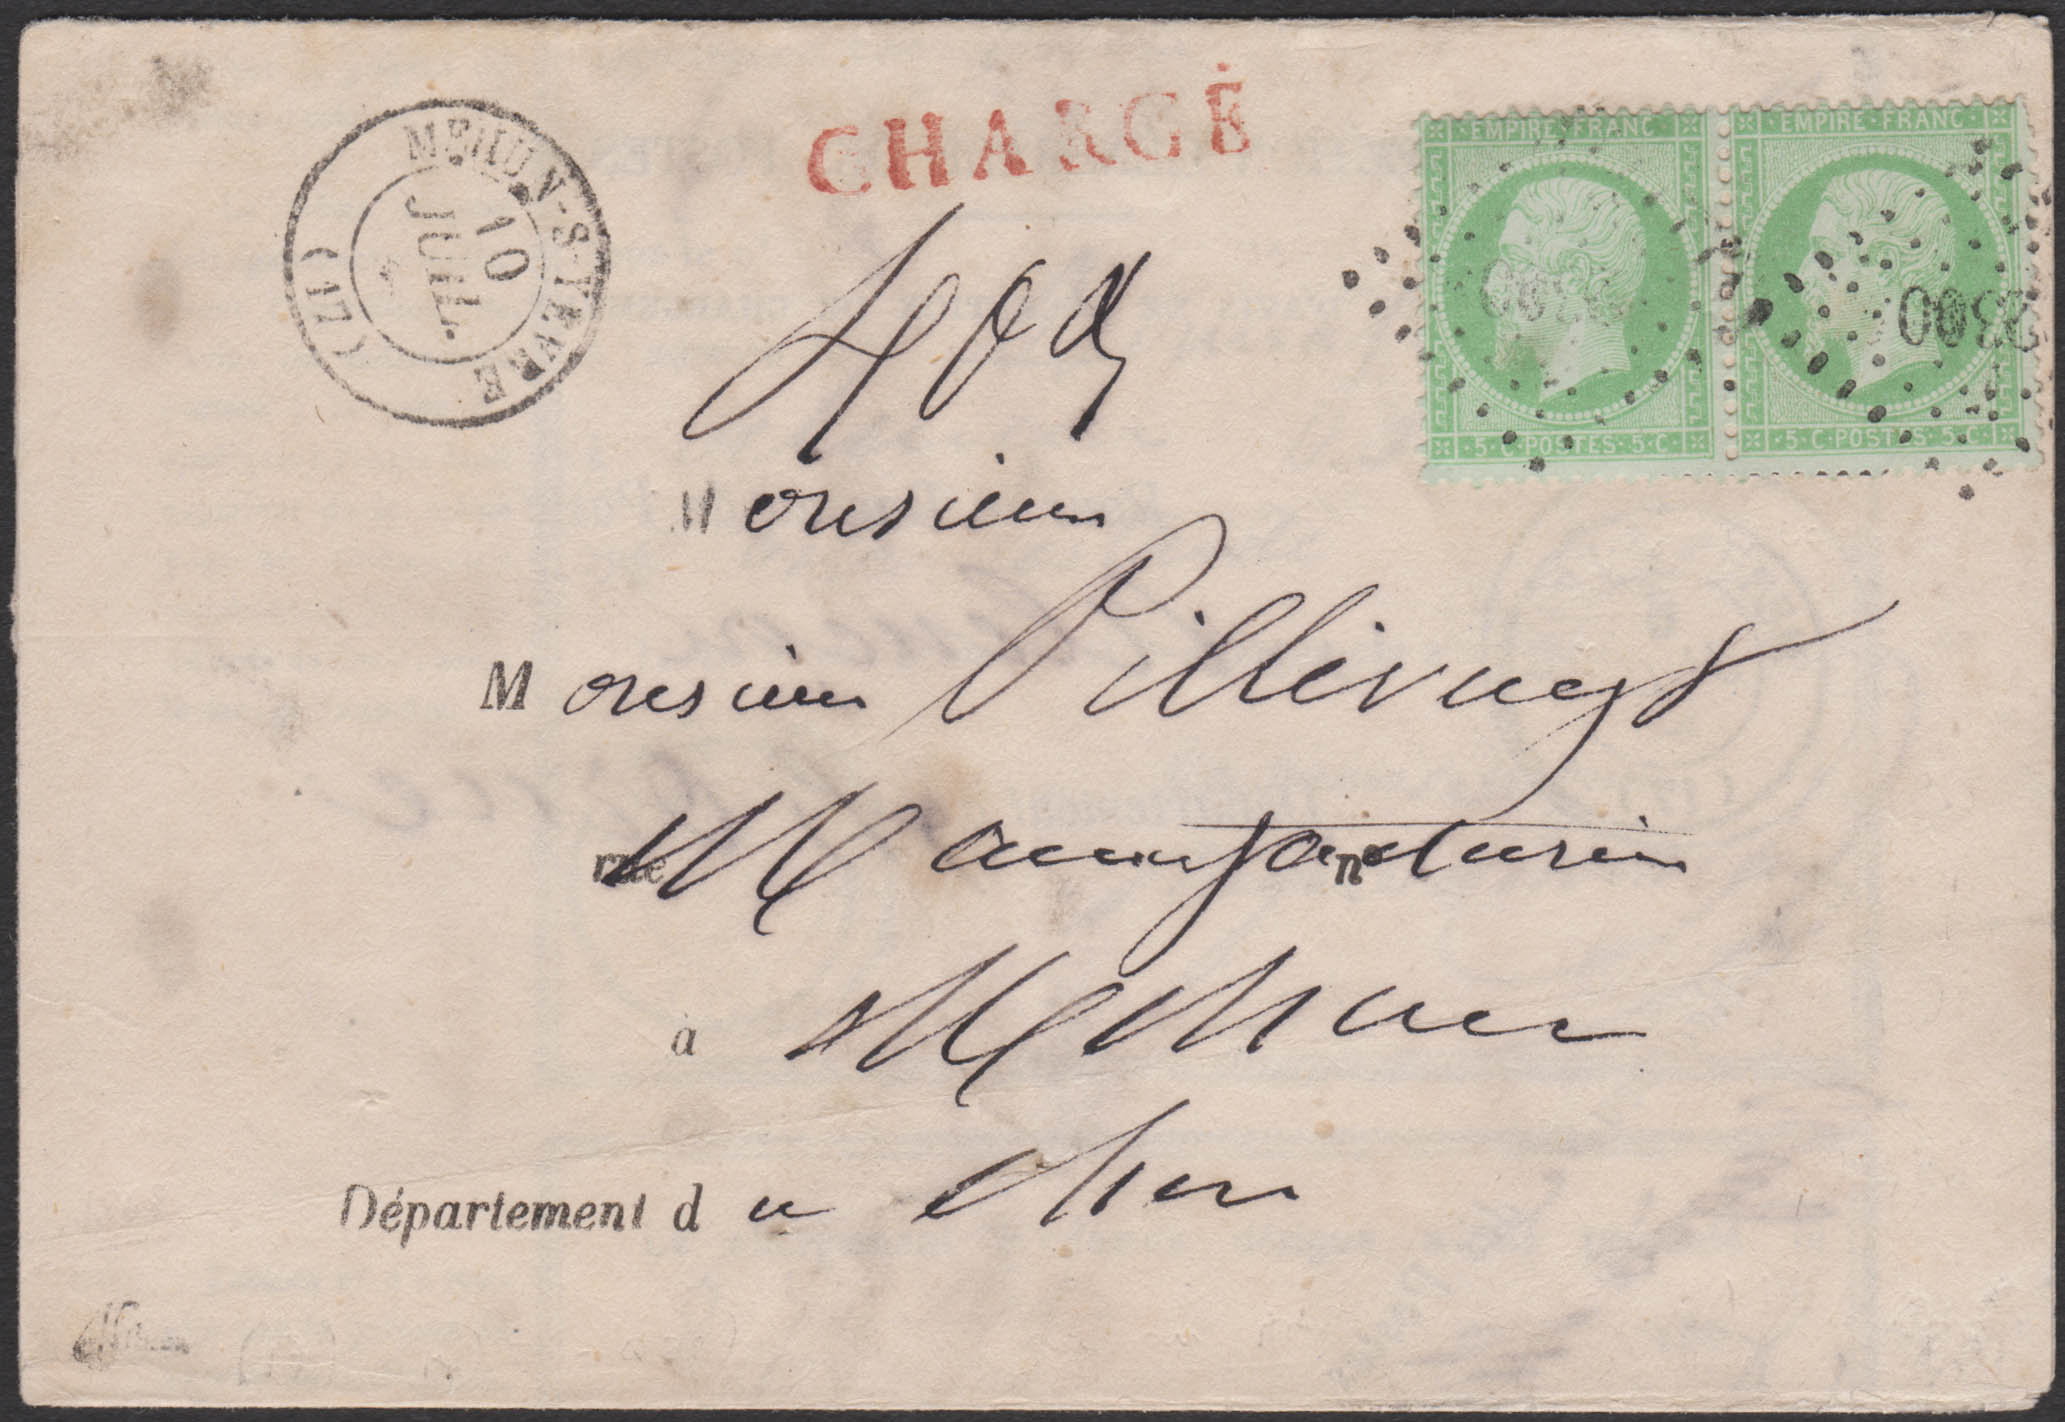 CHARGÉ
MEHUN-S-YEVRE
10
JUIL.
(17)
EMPIRE·FRANC
EMPIRE·FRANC
·5·C·POSTES·5·C·
·5·C·POSTES·5·C·
Monsieur
Monsieur Pillivuyt
rue Manufacturier n°
à Mehun
Département du Cher